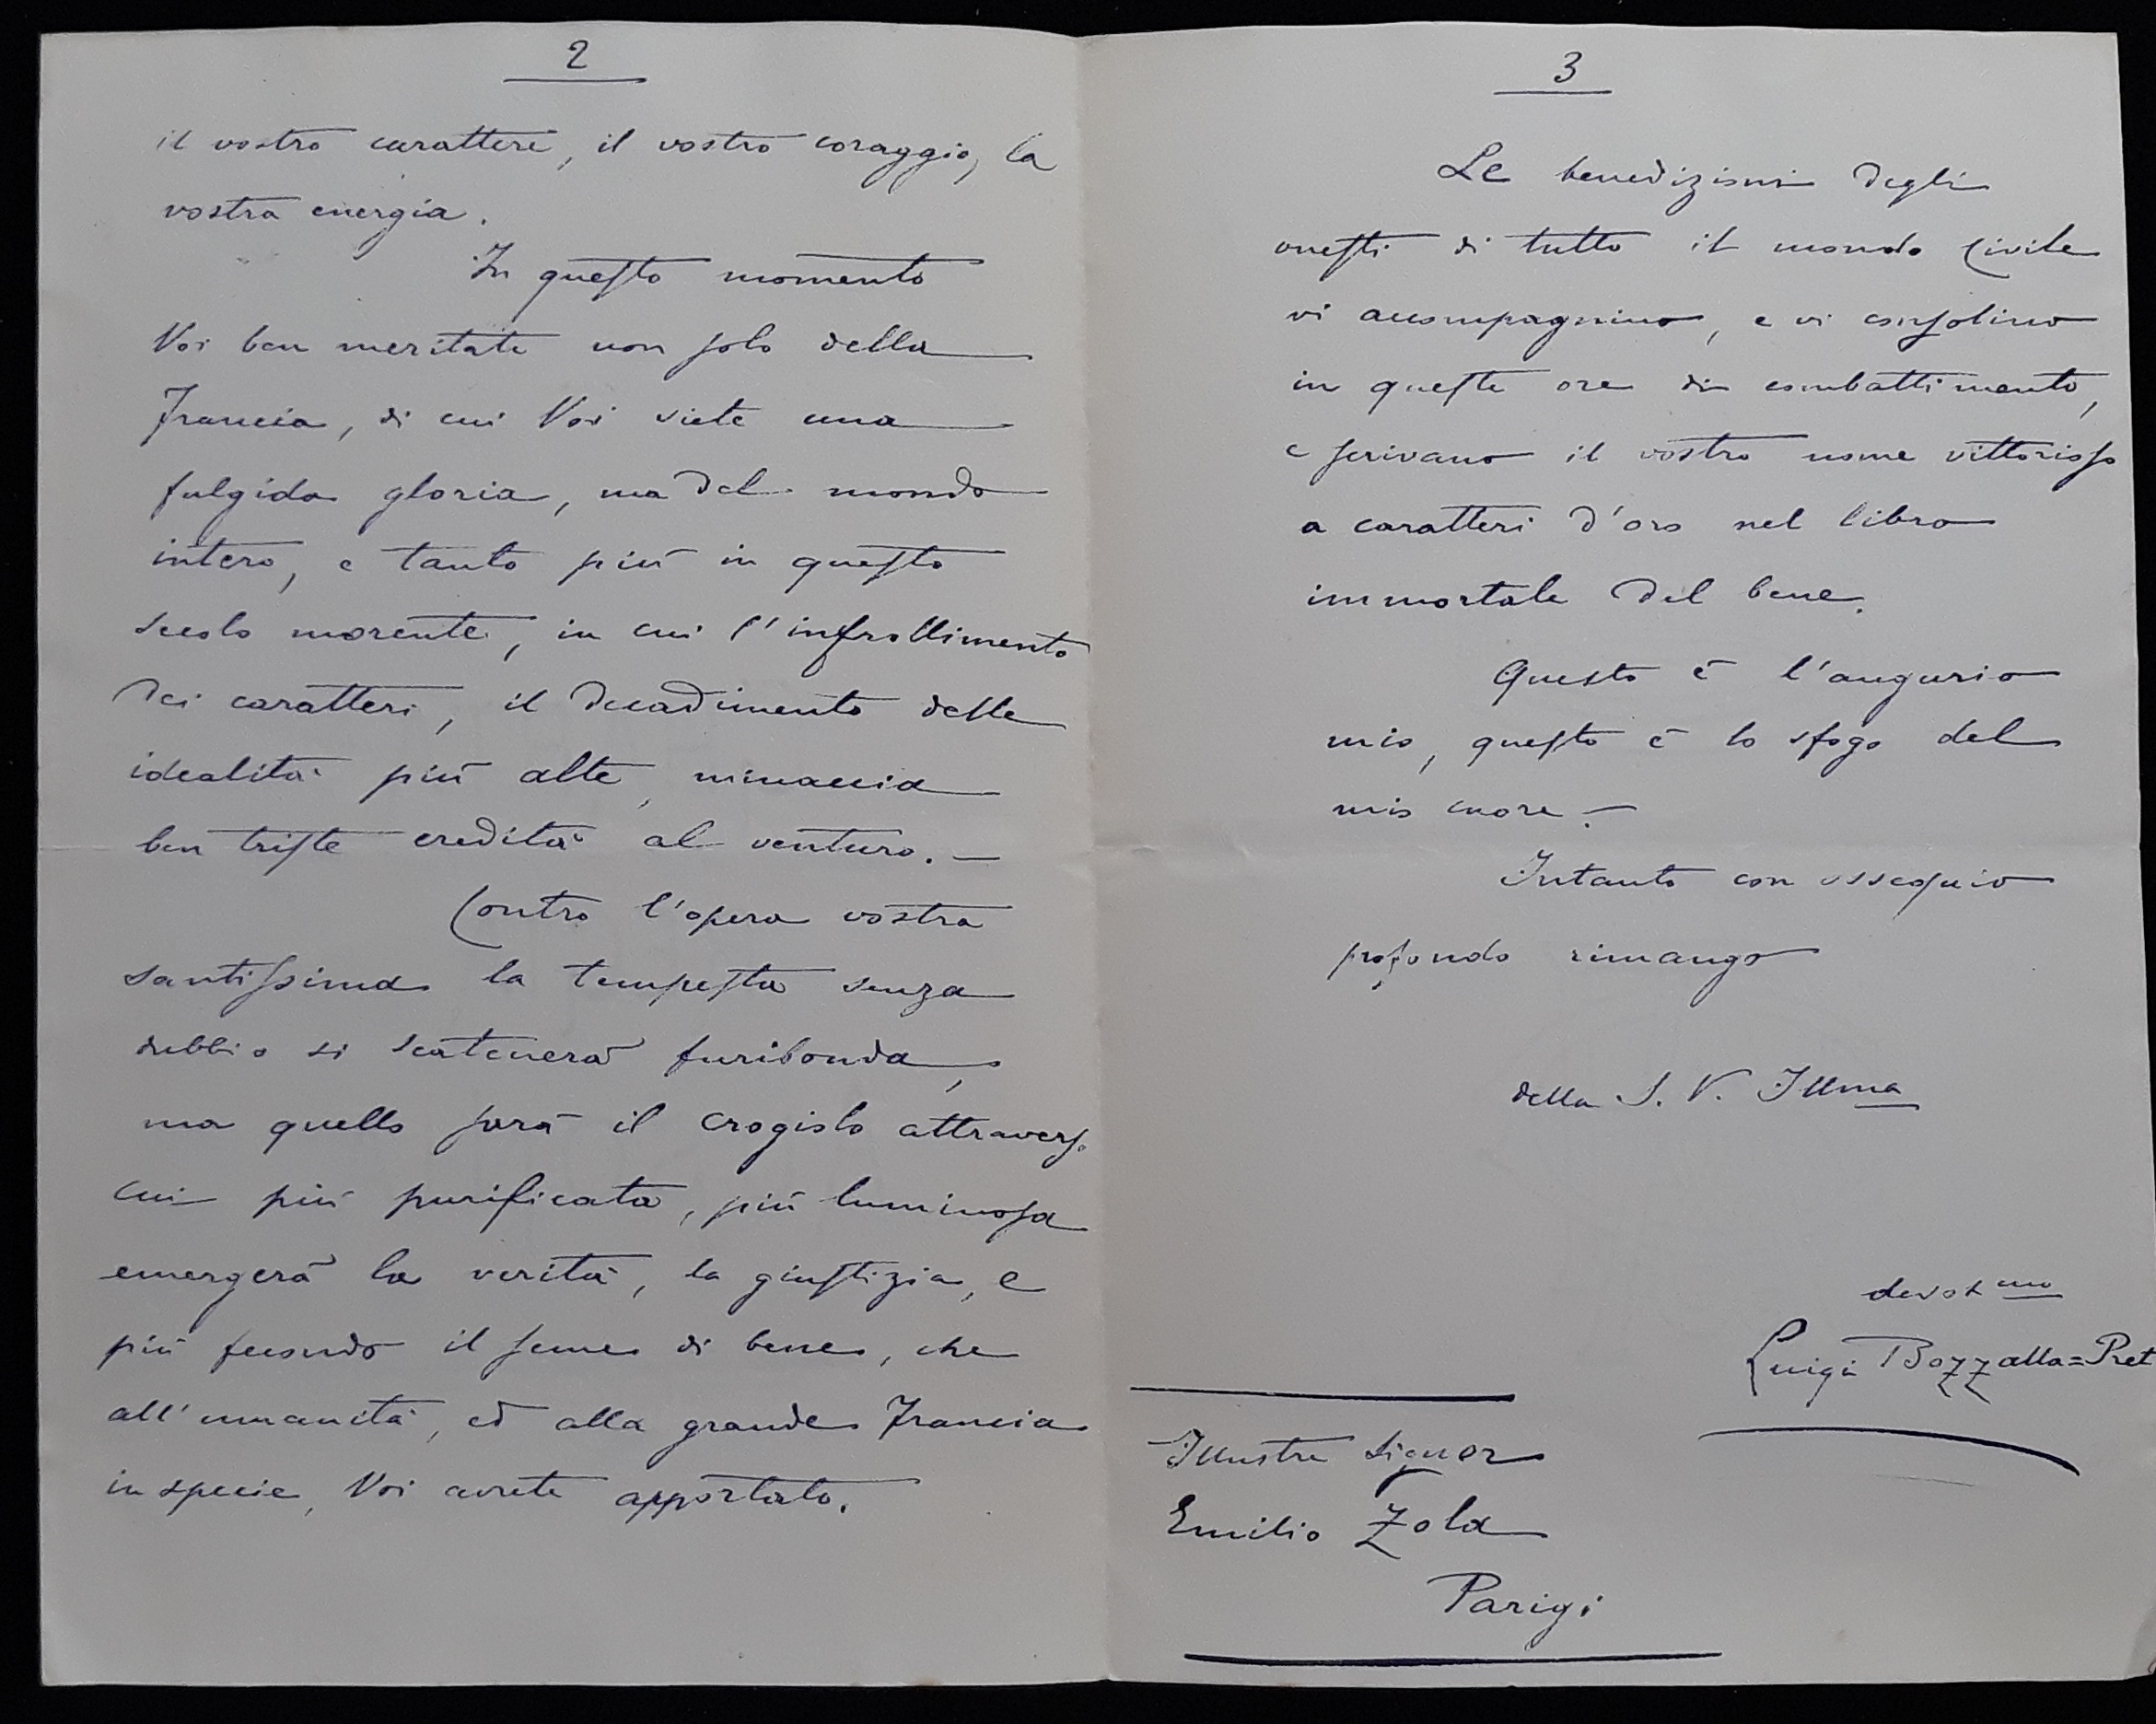 2
il vostro carattere, il vostro coraggio, la
vostra energia.
In questo momento
Voi ben meritate non solo della
Francia, di cui Voi siete una
fulgida gloria, ma del mondo
intero, e tanto più in questo
secolo morente, in cui l'infrollimento
dei caratteri, il decadimento delle
idealità più alte, minaccia
ben triste eredità al venturo. —
Contro l'opera vostra
santissima la tempesta senza
dubbio si scatenerà furibonda,
ma quello sarà il crogiolo attraverso
cui più purificata, più luminosa
emergerà la verità, la giustizia, e
più fecondo il seme di bene, che
all'umanità, ed alla grande Francia
in specie, Voi avrete apportato.
3
Le benedizioni degli
onesti di tutto il mondo civile
vi accompagnino, e vi consolino
in queste ore di combattimento,
e scrivano il vostro nome vittorioso
a caratteri d'oro nel libro
immortale del bene.
Questo è l'augurio
mio, questo è lo sfogo del
mio cuore. —
Intanto con ossequio
profondo rimango
della S. V. Illma
devotmo
Luigi Bozzalla=Pret
Illustre Signor
Emilio Zola
Parigi